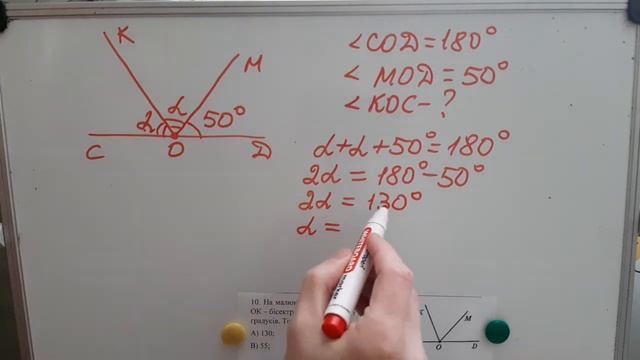 K
M
α
α
50°
C
O
D
∠COD = 180°
∠MOD = 50°
∠KOC - ?
α + α + 50° = 180°
2α = 180° - 50°
2α = 130°
α =
10. На малюн
OK – бісектр
градусів. То
А) 130;
В) 55;
M
O
D